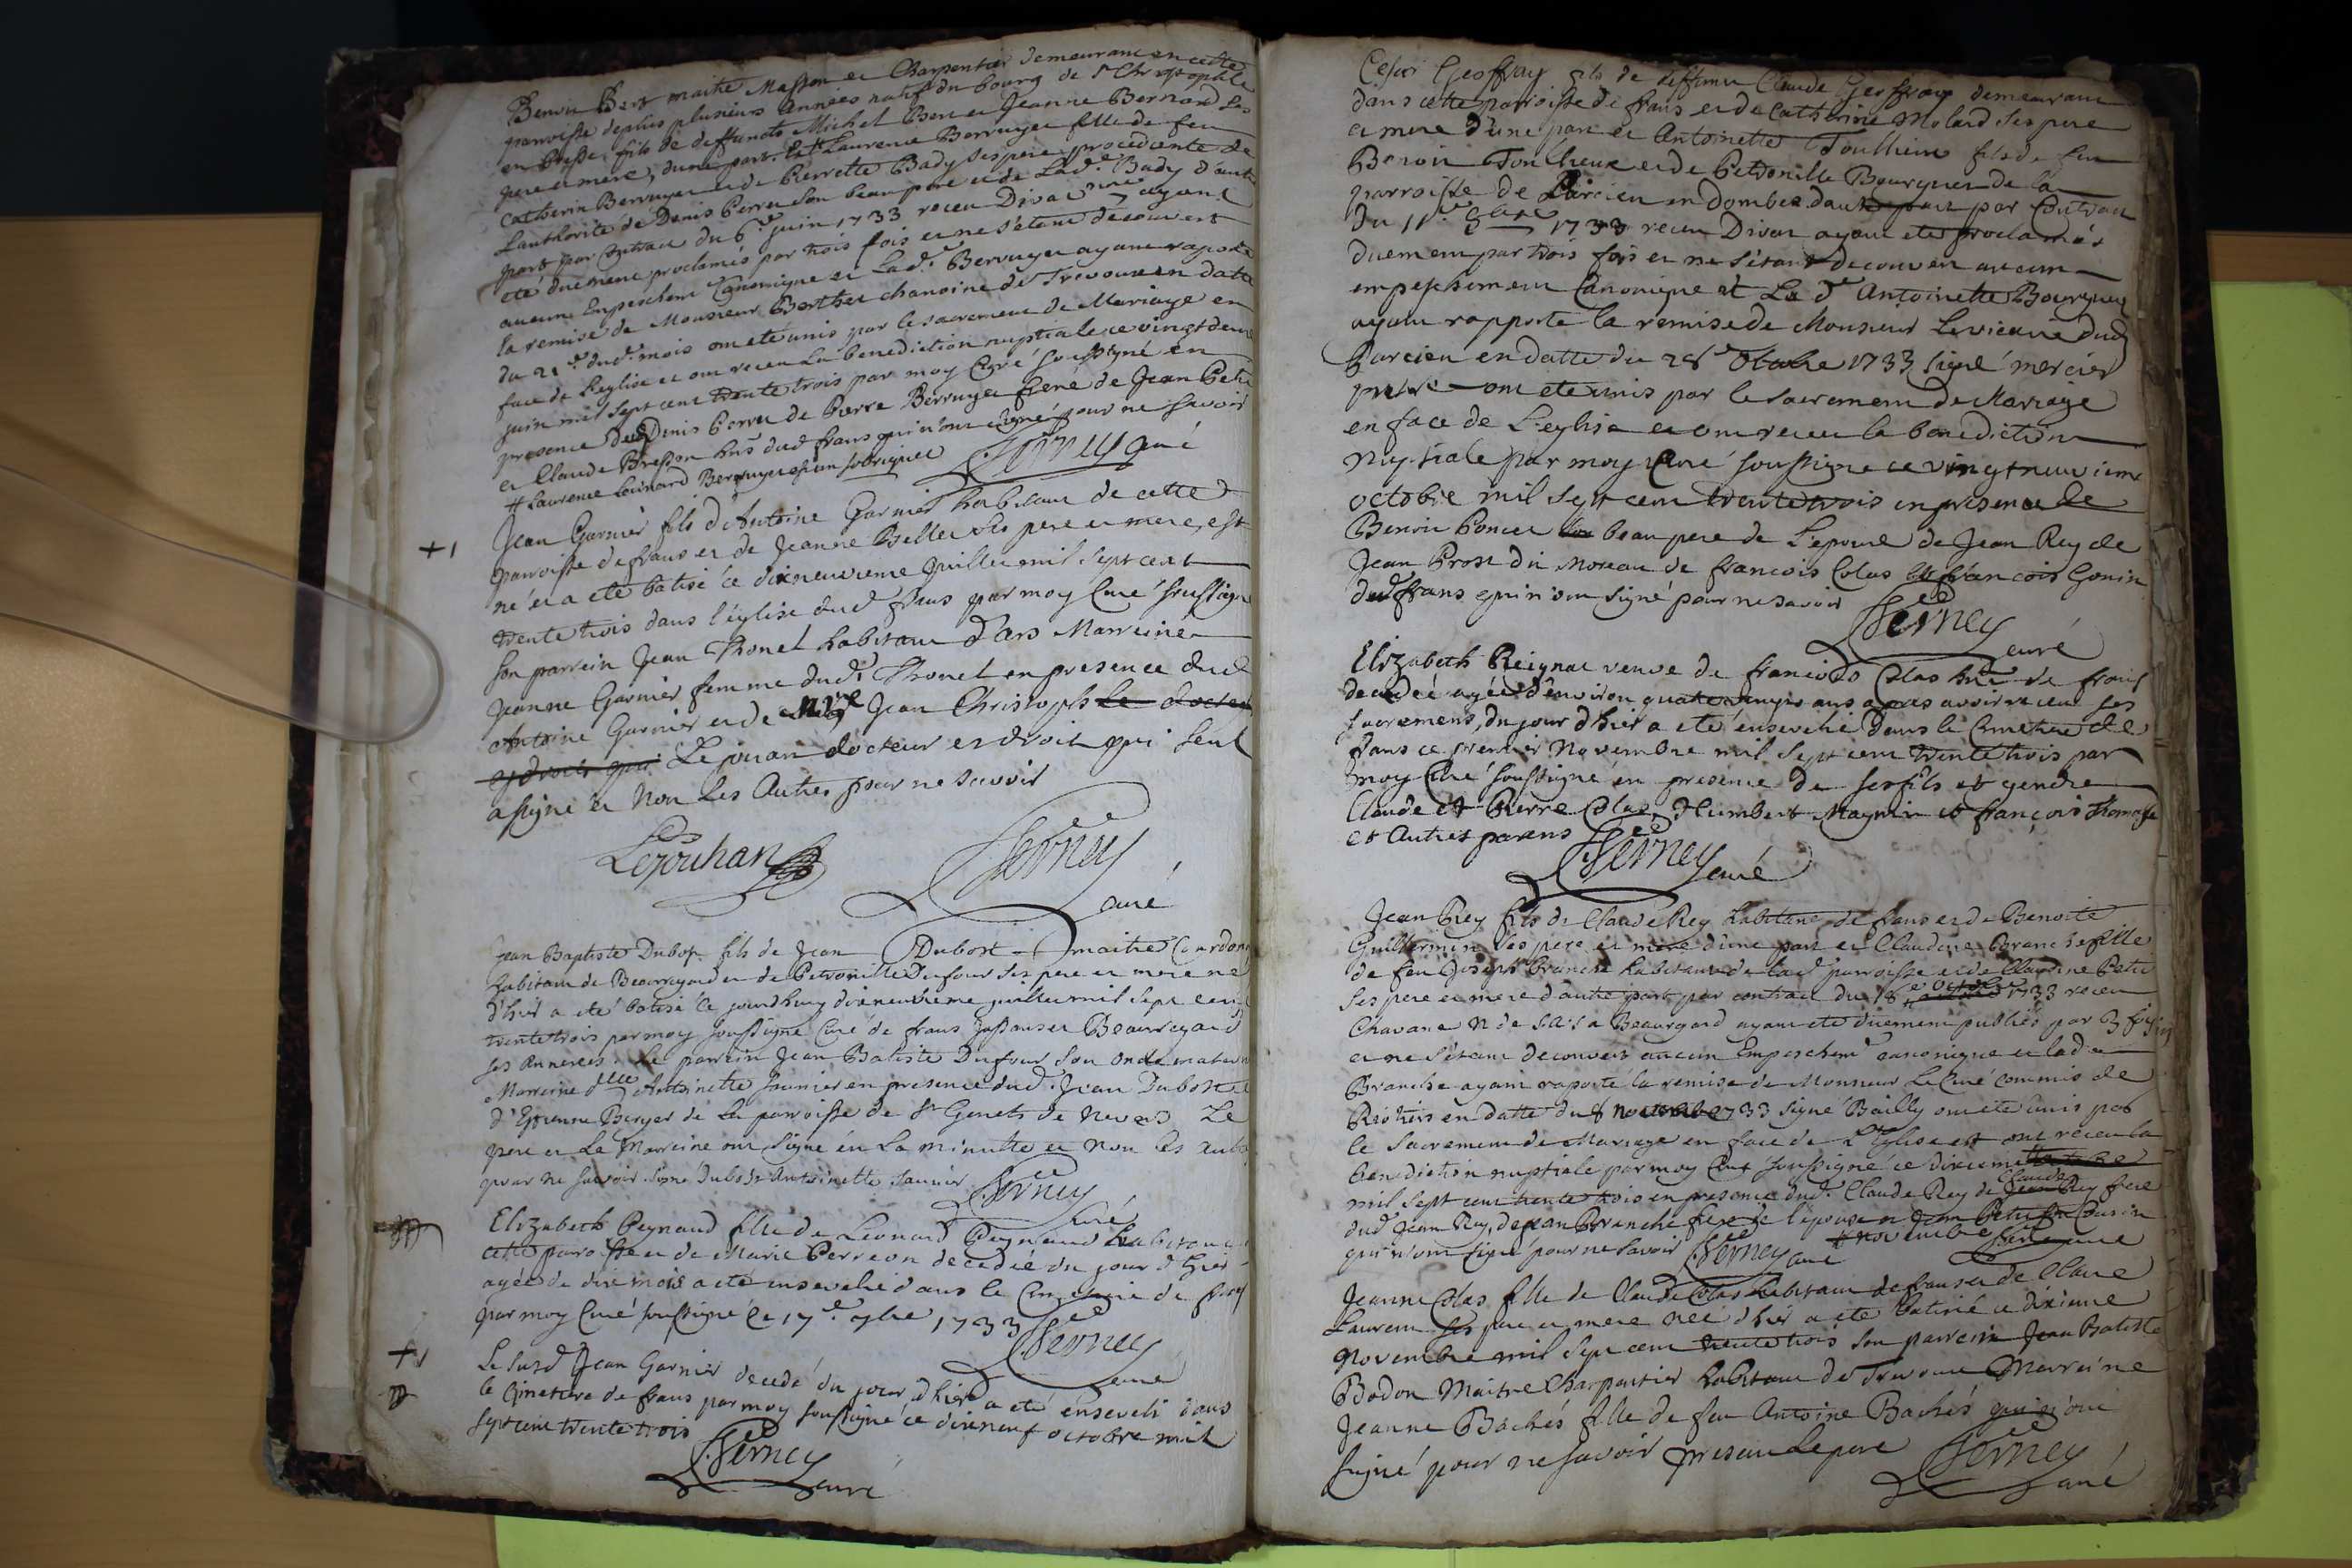 Benoit Bert maitre Masson et Charpentier demeurant en cette
parroisse depuis plusieurs années natif du bourg de St Christophle
en bresse, fils de deffunts Michel Bert et Jeanne Bernard ses
pere et mere, d'une part et Laurence Berruyer fille de feu
Catherin Berruyer et de Pierrette Bady ses pere procedente de
Lauthorité de Denis Perru son beau pere et de Lad.e Bady d'autre
part par contrat du 6.e juin 1733 receu Divat ayant
eté duement proclamés par trois fois et ne s'étant decouvert
aucune Empeschem.t Canonique et Lad.e Berruyer ayant raporté
la remise de Monsieur Berthet chanoine de Trevoux en datte
du 21.e dud.t mois ont eté unis par le sacrement de Mariage en
face de l'eglise et ont receu la benediction nuptiale ce vingt deux
juin mil sept cent trente trois par moy Curé soussigné en
presence dud Denis Perru de Pierre Berruyer frere de Jean Petit
et Claude Bresson dud frans qui n'ont signé pour ne savoir
# Laurence Leonard Berruyer sobriquet Serney curé
+1 Jean Garnier fils d'Antoine Garnier habitant de cette
parroisse de frans et de Jeanne Bellet ses pere et mere, est
né et a eté batisé ce dixneuvieme juillet mil sept cent
trente trois dans l'église dud frans par moy Curé soussigné
son parrein Jean Thonel habitant d'Ars Marreine
Jeanne Garnier femme dud.t Thonel en presence dud
Antoine Garnier et de Jean Christophle le docteur
es droit qui Le jouan docteur es droit qui seul
a signé et Non Les Autres pour ne savoir
Lejouhan Serney
curé
Jean Baptiste Dubost fils de Jean Dubost maitre Cordon
habitant de Beauregard et de Petronille Dufour ses pere et mere né
d'hier a eté batisé ce jourdhuy dixneuvieme juillet mil sept cent
trente trois par moy soussigné Curé de frans Jassans et Beauregard
ses Annexes. Le parrein Jean Batiste Dufour son oncle maternel
Marreine d.lle Antoinette Jaunier en presence dud Jean Dubost et
d'Etienne Berger de la parroisse de St Genets de Le
pere et La Marreine ont signé en La minutte et non les autres
pour ne savoir. Signé Dubost Antoinette Serney
curé
Elizabeth Peynaud fille de Leonard Peynaud habitant
cette paroisse et de Marie Perreon decedée du jour d'hier
agée de dix mois a eté ensevelie dans le Cimetiere de frans
par moy Curé soussigné ce 17.e 7bre 1733 Serney
curé
+1 Le susd Jean Garnier decedé du jour d'hier a eté enseveli dans
le Cimetiere de frans par moy soussigné ce dixneuf octobre mil
sept cent trente trois Serney
curé
Cesar Geoffray fils de deffunct Claude Geoffray demeurant
dans cette parroisse de frans et de Catherine Molard ses pere
et mere d'une part et Antoinette Toullieux fille de feu
Benoit Toullieux et de Petronille Bourguet de la
parroisse de Parcieu en Dombes d'autre part par Contrat
du 11.e 8bre 1733 receu Divat ayant eté proclamés
duement par trois fois et ne s'etant decouvert aucun
empeschement Canonique et La d.e Antoinette Bourguet
ayant rapporté la remise de Monsieur Levicaire dud
Parcieu en datte du 28 Octobre 1733 signé mercier
pretre ont eté unis par le sacrement de Mariage
en face de L'eglise et ont receu la benediction
Nuptiale par moy Curé soussigné ce vingt neuvieme
octobre mil sept cent trente trois en presence de
Benoit Poncet beau pere de L'epouse de Jean Rey de
Jean Prost dit Moreau de francois Colas et francois Gonin
dud frans qui n'ont signé pour ne savoir Serney
curé
Elizabeth Reignat veuve de francois Colas de frans
decedée agée d'environ quatre vingts ans apres avoir receu ses
sacremens, du jour d'hier a eté ensevelie dans le Cimetiere de
frans ce premier Novembre mil sept cent trente trois par
moy Curé soussigné en presence de ses fils et gendre
Claude et Pierre Colas, Humbert Magnin et françois Thomasse
et Autres parens Serney curé
Jean Rey fils de Claude Rey habitant de frans et de Benoite
Guillermin ses pere et mere d'une part et Claudine Branche fille
de feu Joseph Branche habitant de lad parroisse et de Claudine Petit
ses pere et mere d'autre part par contrat du 18.e octobre 1733 receu
Chavane N de Sa:S a Beauregard ayant eté duement publiés par 3 fois
et ne s'etant decouvert aucun Empeschem.t canonique et lad.e
Branche ayant raporté la remise de Monsieur Le Curé commis de
en datte du 8 1733 signé Bailly ont eté unis par
le sacrement de Mariage en face de L'Eglise et ont receu la
benediction nuptiale par moy Curé soussigné ce dixieme octobre
mil sept cent trente trois en presence dud. Claude Rey de Jean Claude Rey frere
dud Jean Rey, de Jean Branche frere de l'epouse et Jean Petit son Cousin
qui n'ont signé pour ne savoir Serney curé # novembre Serney curé
Jeanne Colas fille de Claude Colas habitant de frans et de Claire
Laurent ses pere et mere née d'hier a eté Batisé ce dixieme
Novembre mil sept cent trente trois son parrein Jean Batiste
Bodon Maitre Charpentier habitant de Trevoux Marreine
Jeanne Bachés fille de feu Antoine Bachés qui n'ont
signé pour ne savoir present le pere Serney
curé